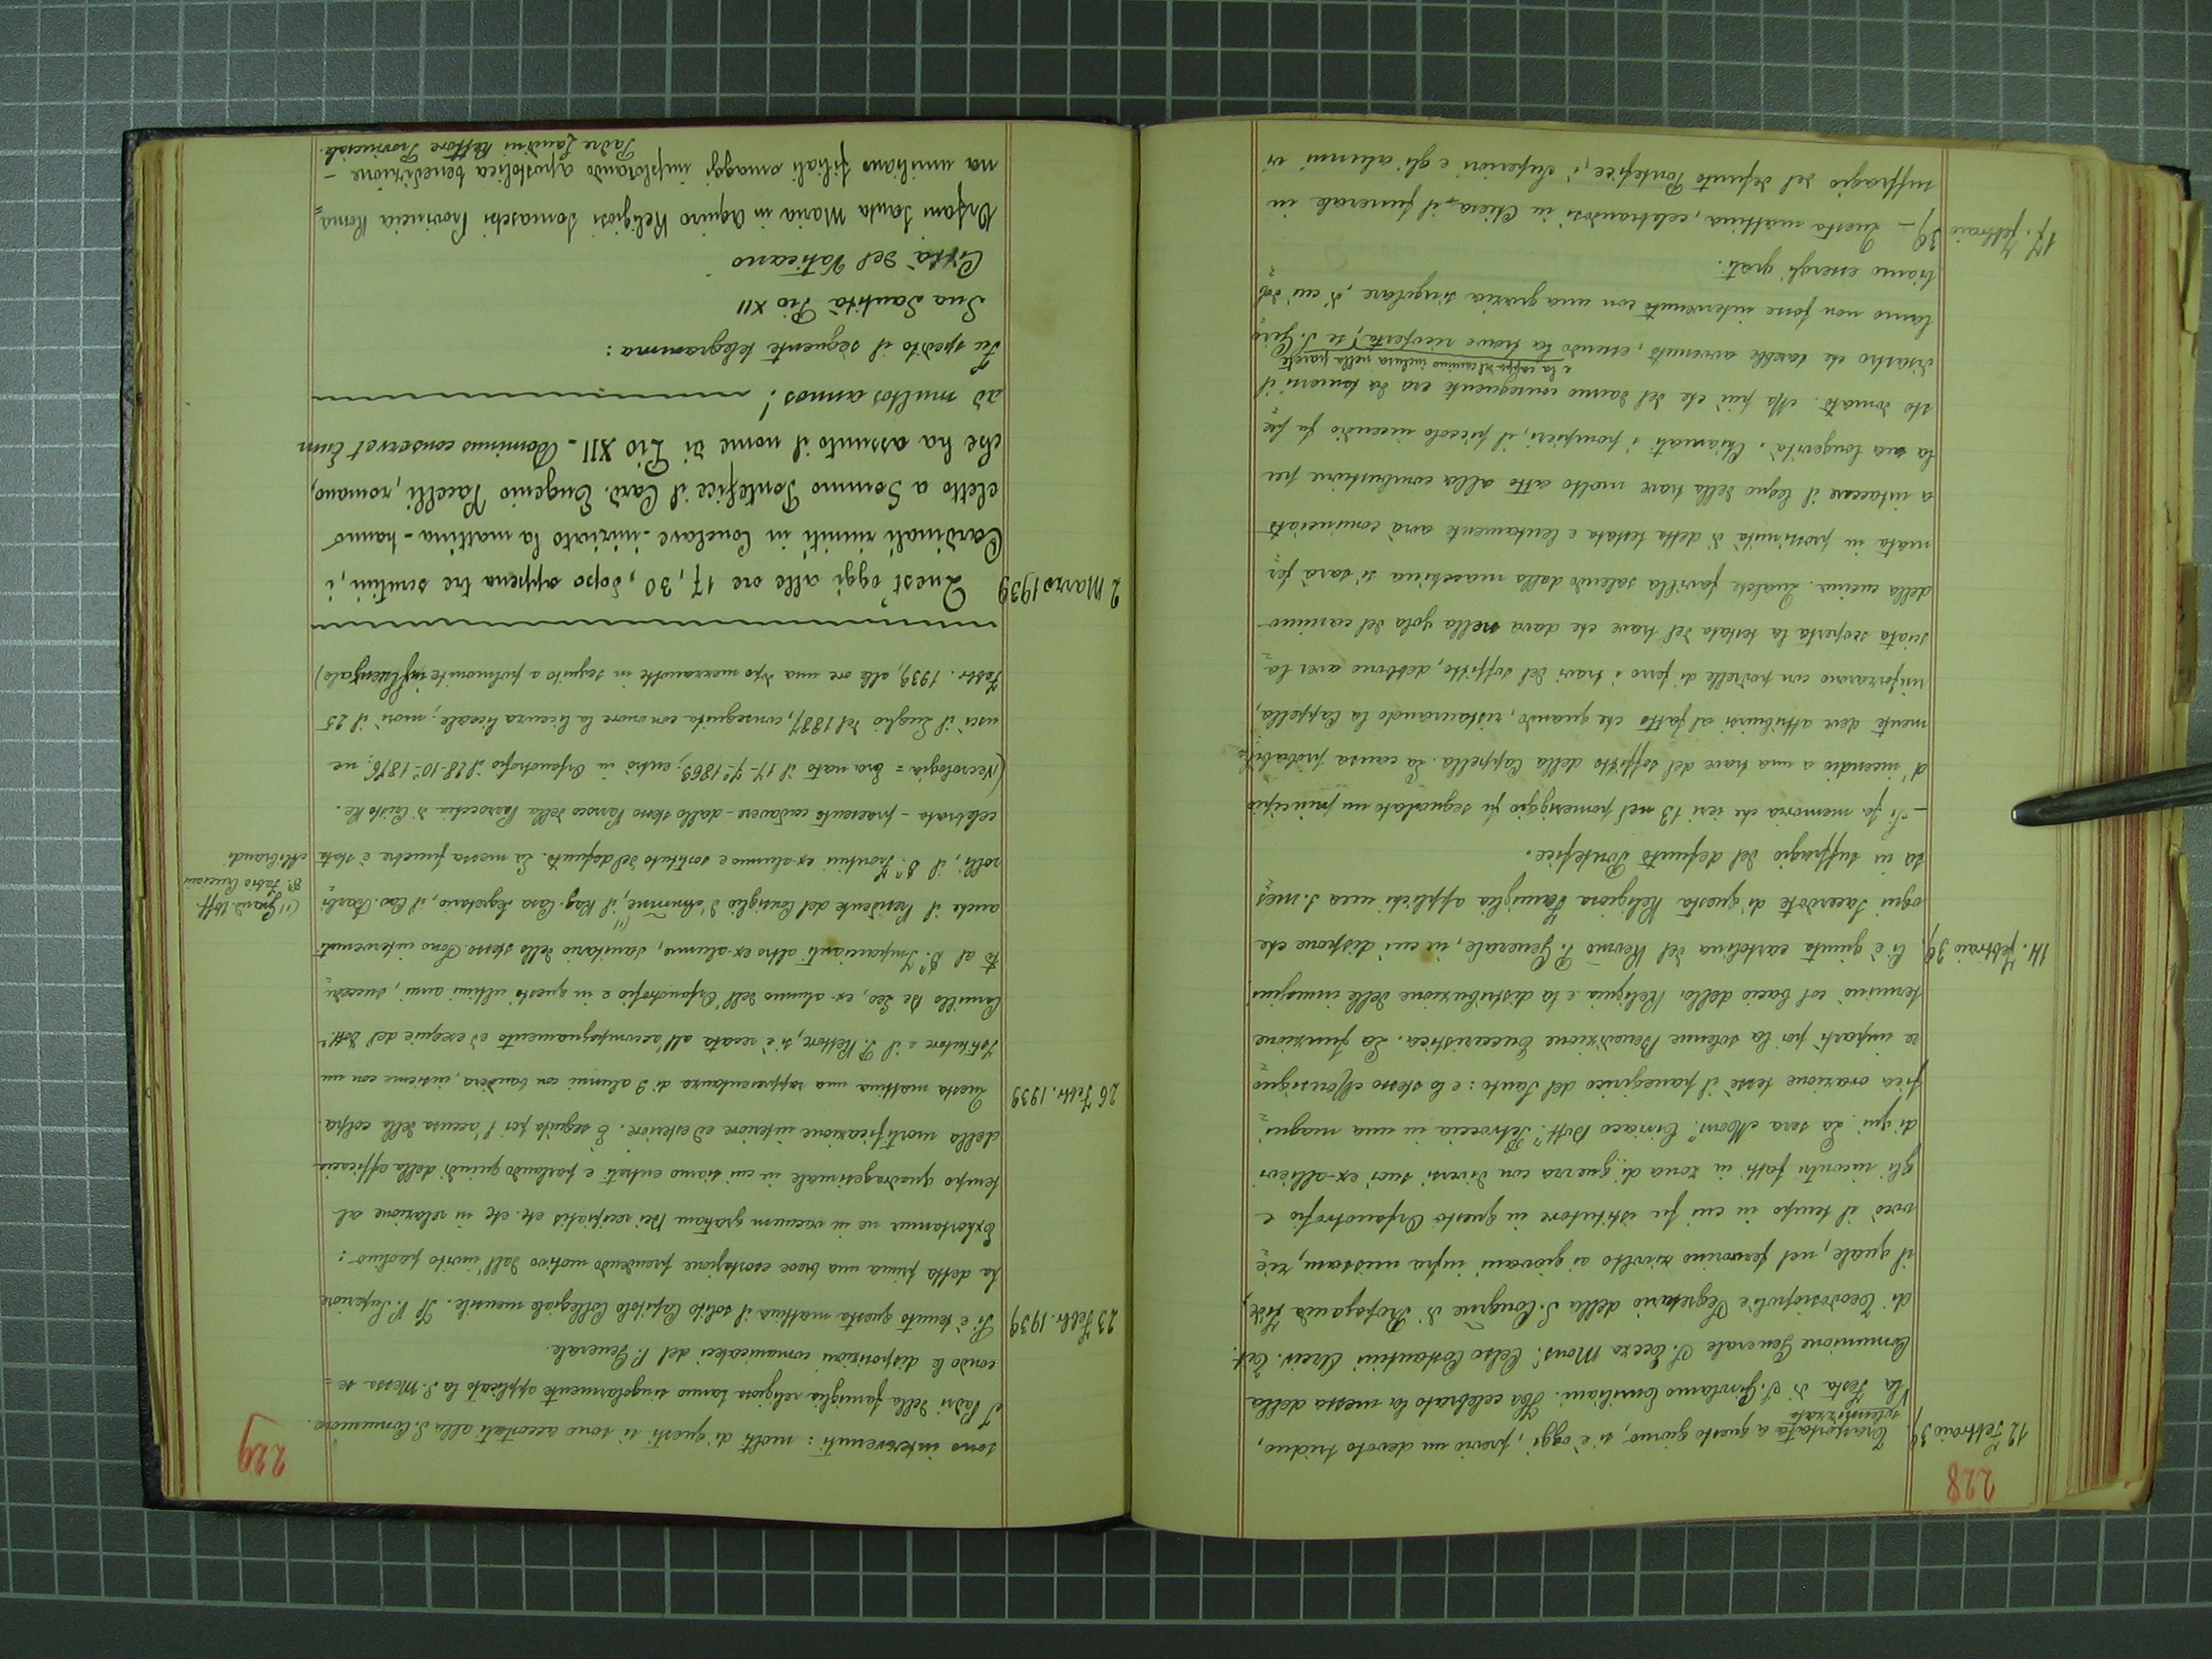 228
12 Febbraio 39. Trasportata a questo giorno, si è oggi, previo un devoto triduo,
solennizzata
la festa di S. Girolamo Emiliani. Ha celebrato la messa della
Comunione Generale S. Eccza Mons. Celso Costantini Arciv. tit.
di Teodosiopoli e Segretario della S. Congne di Propaganda Fide,
il quale, nel fervorino rivolto ai giovani infra missam, rie=
vocò il tempo in cui fu istitutore in questo Orfanotrofio e
gli incontri fatti in zona di guerra con diversi suoi ex-allievi
di qui. La sera Mons. Ciriaco Dott. Petroccia in una magni=
fica orazione tessè il panegirico del Santo: e lo stesso Monsigno=
re impartì poi la solenne Benedizione Eucaristica. La funzione
terminò col bacio della Reliquia e la distribuzione delle immagini
14. Febbraio 39. Ci è giunta cartolina del Revmo P. Generale, in cui dispone che
ogni Sacerdote di questa Religiosa Famiglia applichi una S. Mes=
sa in suffragio del defunto Pontefice.
– Si fa memoria che ieri 13 nel pomeriggio fu segnalato un principio
d'incendio a una trave del soffitto della Cappella. La causa probabil=
mente deve attribuirsi al fatto che quando, ristaurando la Cappella,
rinforzarono con putrelle di ferro i travi del soffitto, debbono aver la=
sciata scoperta la testata del trave che dava nella gola del camino
della cucina. Qualche favilla salendo dalla macchina si sarà fer=
mata in prossimità di detta testata e lentamente avrà cominciato
a intaccare il legno della trave molto atto alla combustione per
la sua longevità. Chiamati i pompieri, il piccolo incendio fu pre=
sto domato. Ma più che del danno conseguente era da temersi il
e la cappa del camino inclusa nella parete
disastro che sarebbe avvenuto, essendo la trave ricoperta, se S. Giro=
lamo non fosse intervenuto con una grazia singolare, di cui dob=
biamo essergli grati.
17. febbraio 39 – Questa mattina, celebrandosi in Chiesa, il funerale in
suffragio del defunto Pontefice, i Superiori e gli alunni vi
229
sono intervenuti: molti di questi si sono accostati alla S. Comunione.
I Padri della famiglia religiosa hanno singolarmente applicato la S. Messa se=
condo le disposizioni comunicateci del P. Generale.
23 Febbr. 1939 Si è tenuto questa mattina il solito Capitolo Collegiale mensile. Il P. Superiore
ha detta prima una breve esortazione prendendo motivo dall'invito paolino:
Exhortamur ne in vacuum gratiam Dei recipiatis etc. etc in relazione al
tempo quadragesimale in cui siamo entrati e parlando quindi della efficacia
della mortificazione interiore ed esteriore. È seguita poi l'accusa delle colpe.
26 Febbr. 1939 Questa mattina una rappresentanza di 9 alunni con bandiera, insieme con un
Istitutore e il P. Rettore, si è recata all'accompagnamento ed esequie del Dott.
Camillo De Leo, ex-alunno dell'Orfanotrofio e in questi ultimi anni, succedu=
to al Dr. Impaccianti altro ex-alunno, Sanitario dello stesso. Sono intervenuti
anche il Presidente del Consiglio d'Ammne, (1) il Rag. Casa Segretario, il Cav. Barbi=
rolli, il Dr. Frontini ex-alunno e sostituto del defunto. La messa funebre è stata
celebrata – praesente cadavere – dallo stesso Parroco della Parrocchia di Cristo Re.
(1) Grand. Uff.
Dr. Fabio Cruciani
Alibrandi
(Necrologia = Era nato il 17-7º-1869; entrò in Orfanotrofio il 28-10º-1876; ne
uscì il Luglio del 1887, conseguita con onore la licenza liceale; morì il 25
Febbr. 1939, alle ore una dopo mezzanotte in seguito a polmonite influenzale)
2 Marzo 1939 Quest'oggi alle ore 17,30, dopo appena tre scrutini, i
Cardinali riuniti in Conclave – iniziato la mattina – hanno
eletto a Sommo Pontefice il Card. Eugenio Pacelli, romano,
che ha assunto il nome di Pio XII – Dominus conservet Eum
ad multos annos!
Fu spedito il seguente telegramma:
Sua Santità Pio XII
Città del Vaticano
Orfani Santa Maria in Aquiro Religiosi Somaschi Provincia Roma=
na umiliano filiali omaggi implorando apostolica benedizione –
Padre Landini Rettore Provinciale.